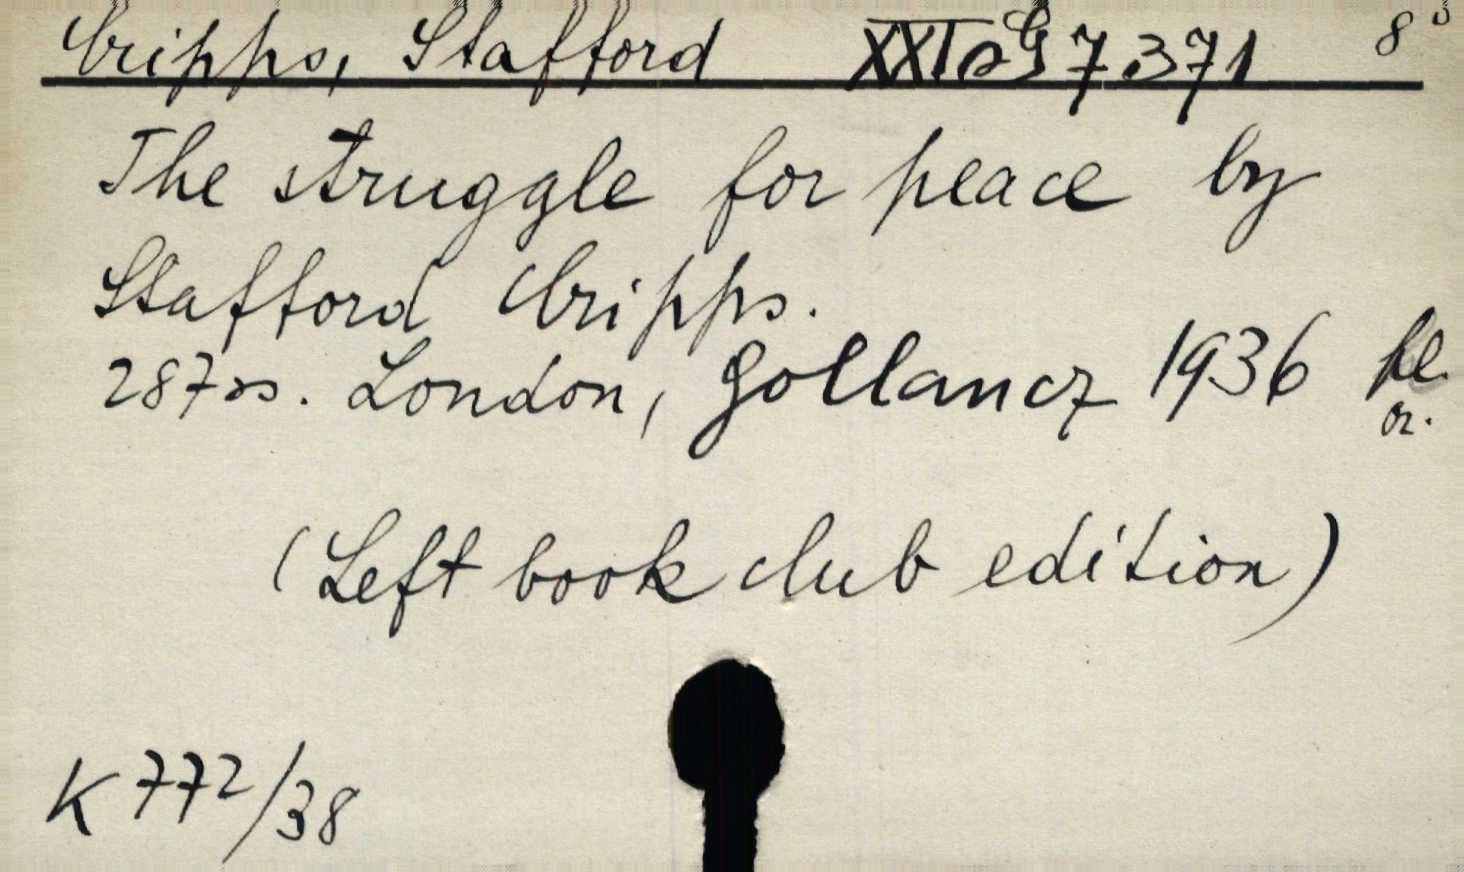 Cripps, Stafford XXI a G 7371 8°
The struggle for peace by
Stafford Cripps.
287 ss. London, Gollancz 1936 pl.
or.
(Left book club edition)
K 772/38